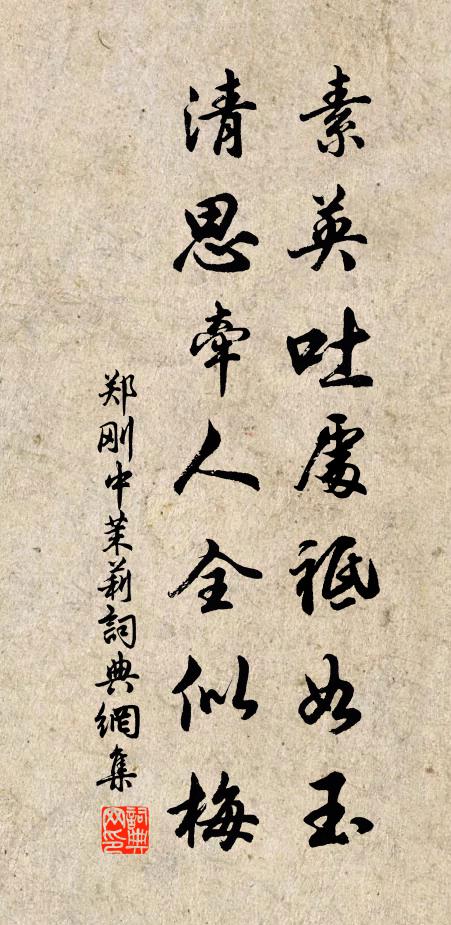 素英吐處祗如玉
清思牽人全似梅
郑刚中茉莉詞典網集
詞典网印